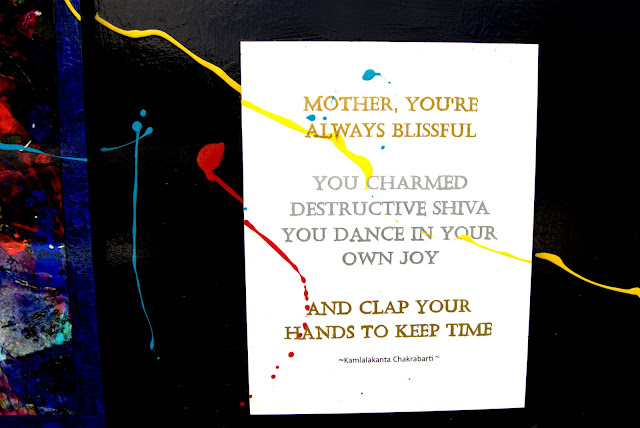 MOTHER, YOU'RE
ALWAYS BLISSFUL
YOU CHARMED
DESTRUCTIVE SHIVA
YOU DANCE IN YOUR
OWN JOY
AND CLAP YOUR
HANDS TO KEEP TIME
~Kamlalakanta Chakrabarti ~